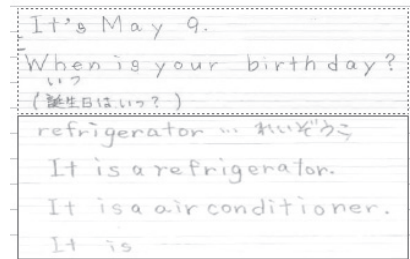 It's May 9.
When is your birthday?
いつ
(誕生日はいつ?)
refrigerator … れいぞうこ
It is a refrigerator.
It is a air conditioner.
It is